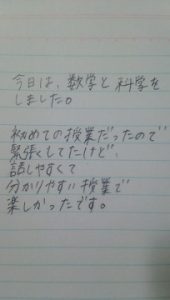 今日は、数学と科学を
しました。
初めての授業だったので
緊張してたけど、
話しやすくて
分かりやすい授業で
楽しかったです。